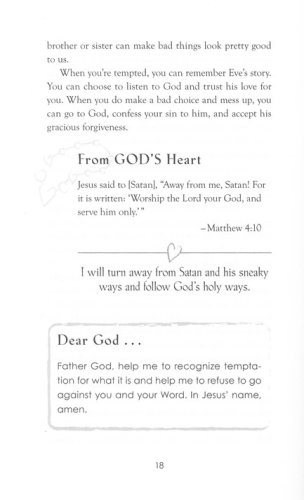 brother or sister can make bad things look pretty good
to us.
When you're tempted, you can remember Eve's story.
You can choose to listen to God and trust his love for
you. When you do make a bad choice and mess up, you
can go to God, confess your sin to him, and accept his
gracious forgiveness.
From GOD'S Heart
Jesus said to [Satan], “Away from me, Satan! For
it is written: ‘Worship the Lord your God, and
serve him only.’”
–Matthew 4:10
I will turn away from Satan and his sneaky
ways and follow God's holy ways.
Dear God . . .
Father God, help me to recognize tempta-
tion for what it is and help me to refuse to go
against you and your Word. In Jesus' name,
amen.
18